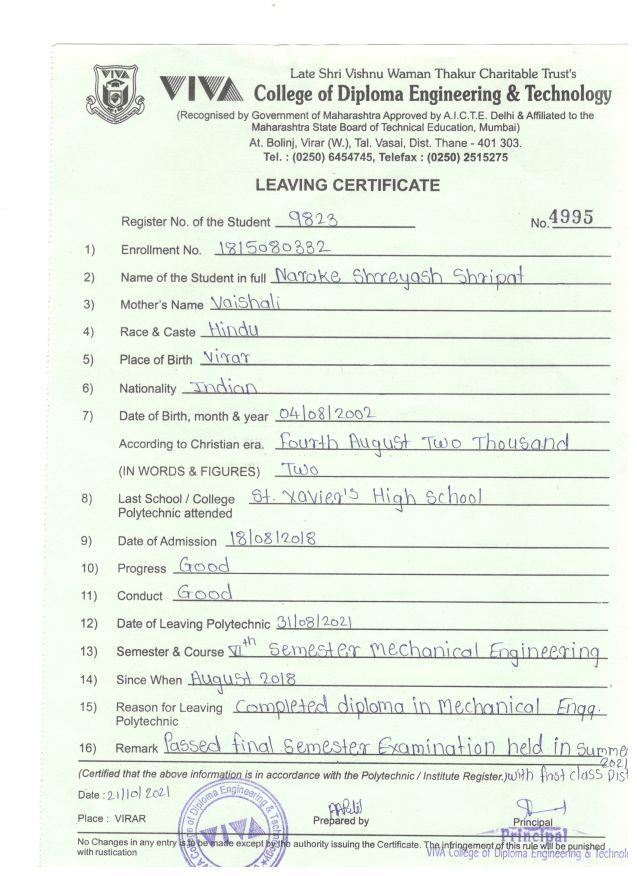 VIVA
VIVA
Late Shri Vishnu Waman Thakur Charitable Trust's
College of Diploma Engineering & Technology
(Recognised by Government of Maharashtra Approved by A.I.C.T.E. Delhi & Affiliated to the
Maharashtra State Board of Technical Education, Mumbai)
At. Bolinj, Virar (W.), Tal. Vasai, Dist. Thane - 401 303.
Tel. : (0250) 6454745, Telefax : (0250) 2515275
LEAVING CERTIFICATE
Register No. of the Student 9823 No. 4995
1) Enrollment No. 1815080332
2) Name of the Student in full Narake Shreyash Shripat
3) Mother's Name Vaishali
4) Race & Caste Hindu
5) Place of Birth Virar
6) Nationality Indian
7) Date of Birth, month & year 04/08/2002
According to Christian era. Fourth August Two Thousand
(IN WORDS & FIGURES) Two
8) Last School / College St. Xavier's High School
Polytechnic attended
9) Date of Admission 18/08/2018
10) Progress Good
11) Conduct Good
12) Date of Leaving Polytechnic 31/08/2021
13) Semester & Course VIth Semester Mechanical Engineering
14) Since When August 2018
15) Reason for Leaving Completed diploma in Mechanical Engg.
Polytechnic
16) Remark Passed final Semester Examination held in Summer
2021
(Certified that the above information is in accordance with the Polytechnic / Institute Register.) with first class Dist
Date : 21/10/2021
Place : VIRAR
Prepared by
Principal
Principal
VIVA College of Diploma Engineering & Technolo
VIVA College of Diploma Engineering & Technology
VIVA
No Changes in any entry is to be made except by the authority issuing the Certificate. The infringement of this rule will be punished
with rustication